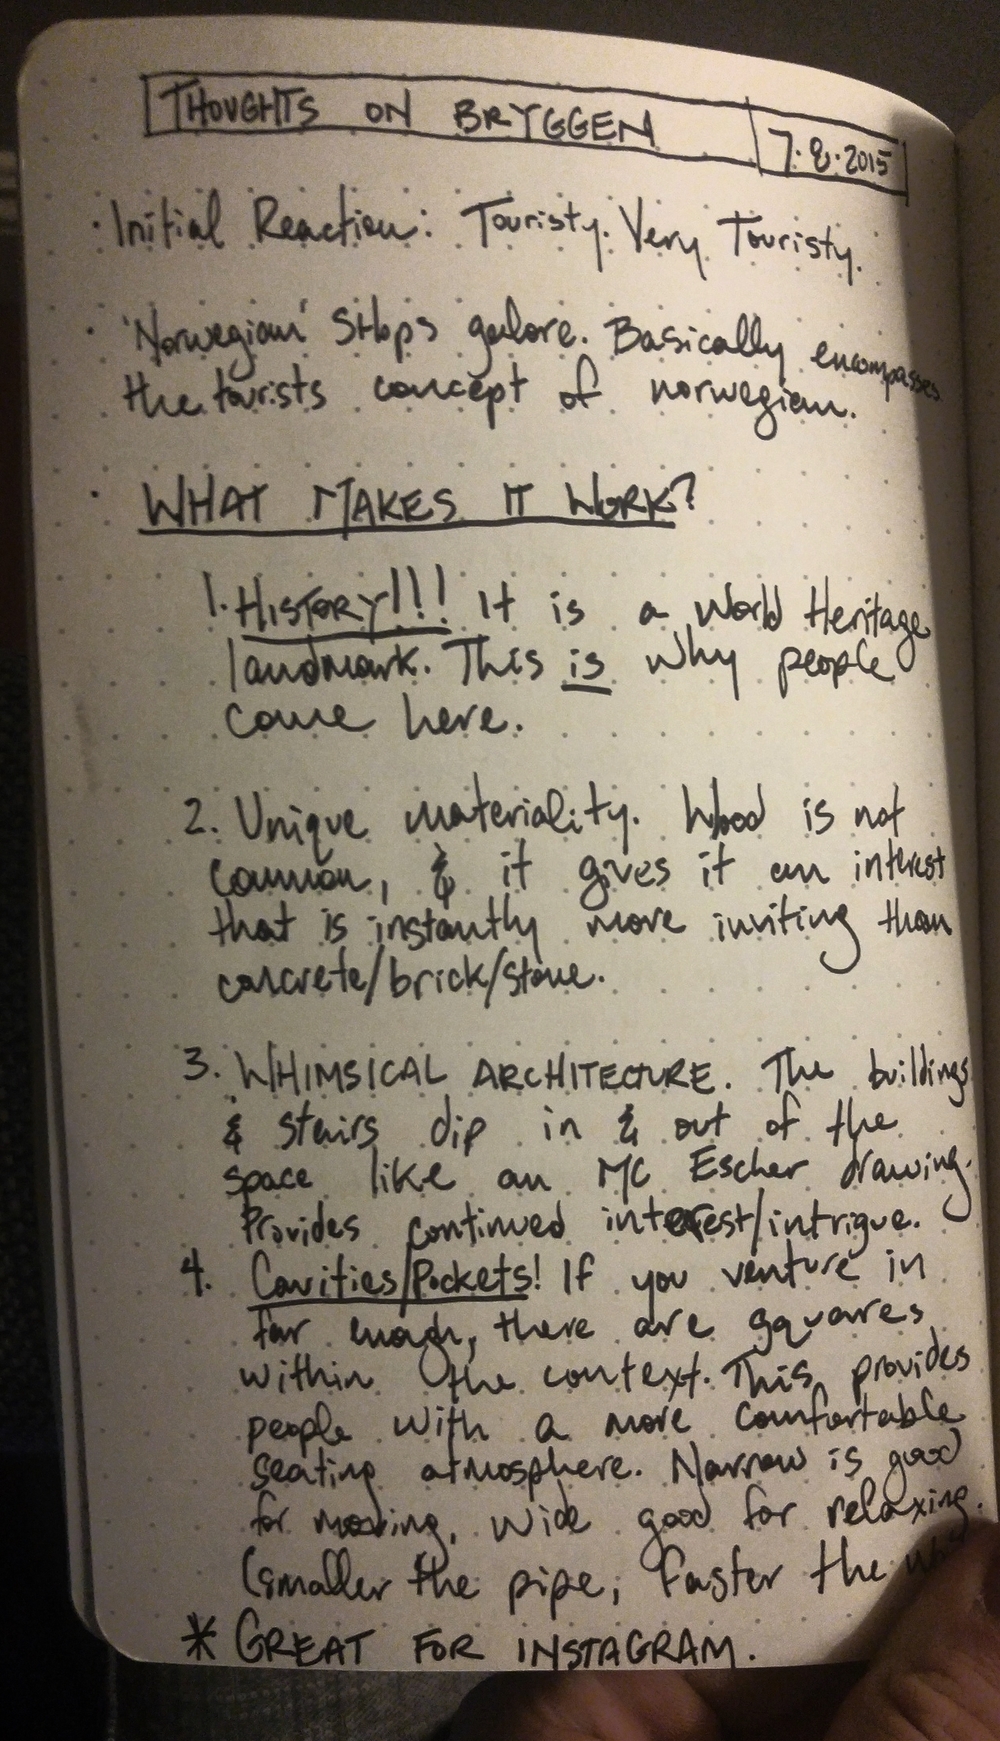 THOUGHTS ON BRYGGEN 7.8.2015
· Initial Reaction: Touristy. Very Touristy.
· 'Norwegian' SHops galore. Basically encompasses
the tourists concept of norwegian.
· WHAT MAKES IT WORK?
1. HISTORY!!! It is a World Heritage
landmark. This is why people
come here.
2. Unique materiality. Wood is not
common, & it gives it an interest
that is instantly more inviting than
concrete/brick/stone.
3. WHIMSICAL ARCHITECTURE. The buildings
& stairs dip in & out of the
space like an MC Escher drawing.
Provides continued interest/intrigue.
4. Cavities/Pockets! If you venture in
far enough, there are squares
within the context. This provides
people with a more comfortable
seating atmosphere. Narrow is good
for moving, wide good for relaxing.
(smaller the pipe, faster the
* GREAT FOR INSTAGRAM.